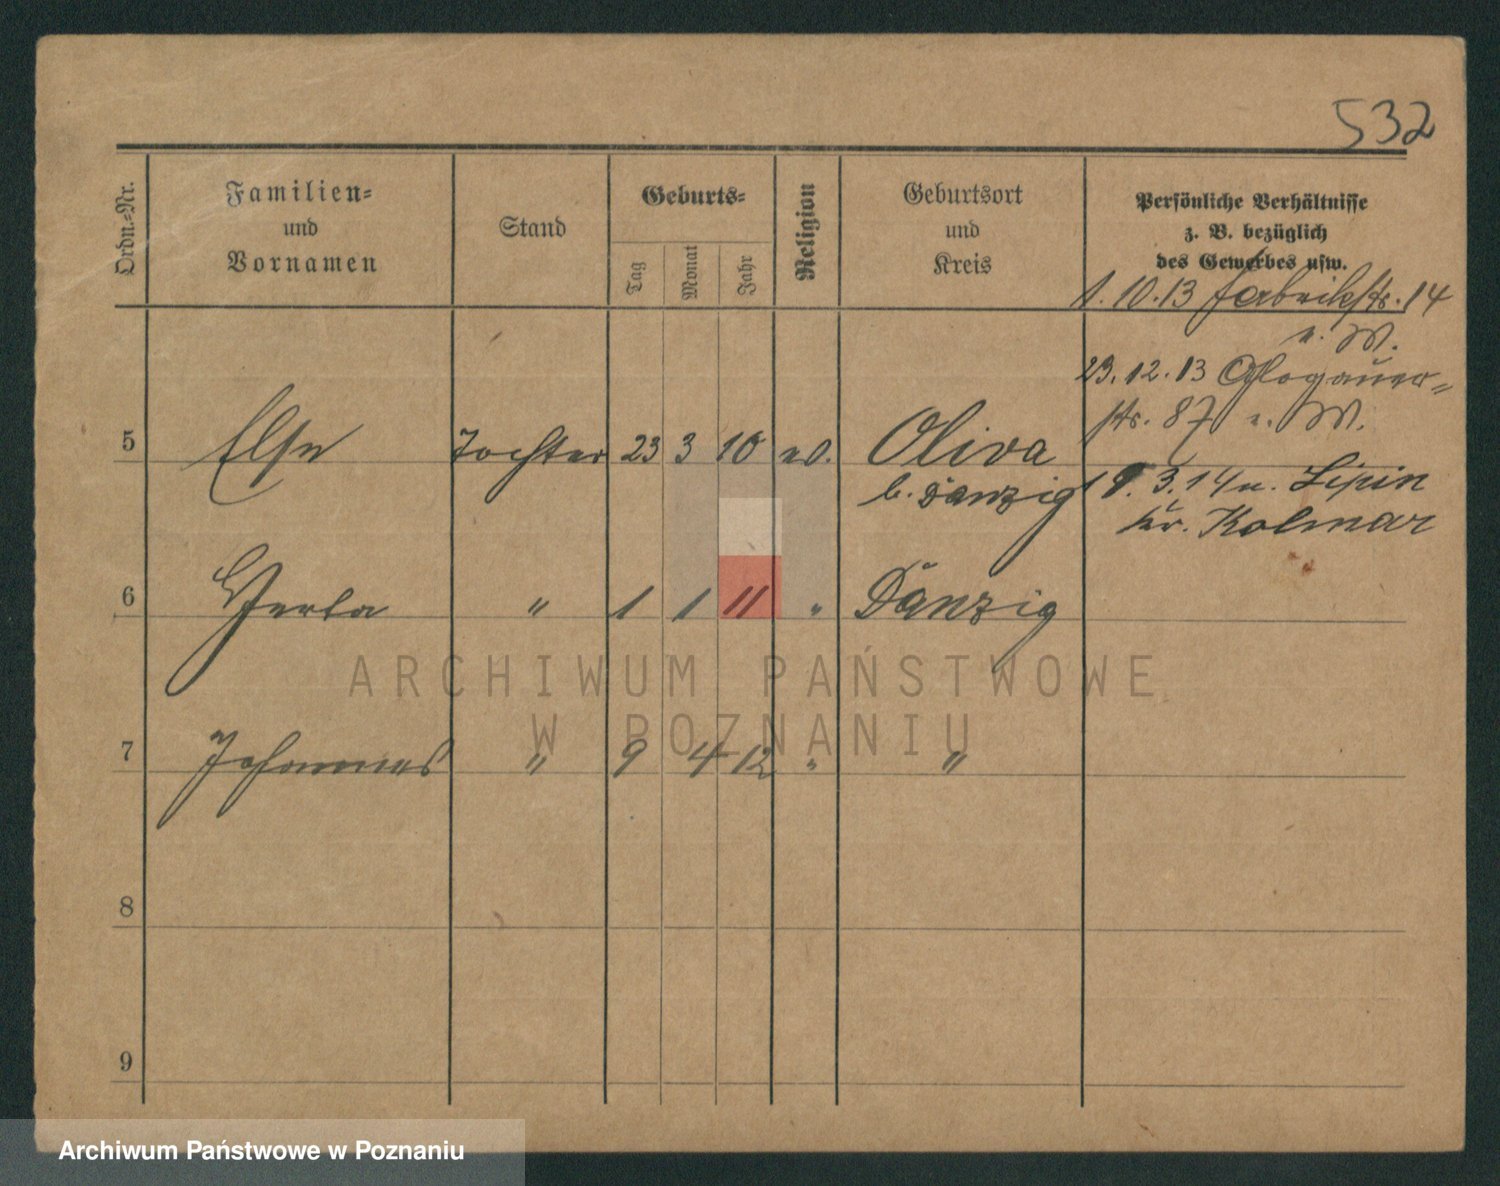 532
Ordn.=Nr.
Familien=
und
Vornamen
Stand
Geburts=
Tag
Monat
Jahr
Religion
Geburtsort
und
Kreis
Persönliche Verhältnisse
z. B. bezüglich
des Gewerbes usw.
1.10.13 Fabrikstr. 14
b. W.
23.12.13 Glogauer=
str. 87 b. W.
5 Else Tochter 23 3 10 ev. Oliva
b. Danzig
19.3.14 n. Lipin
Kr. Kolmar
6 Gerta " 1 1 11 " Danzig
7 Johannes " 9 4 12 " "
8
9
ARCHIWUM PAŃSTWOWE
W POZNANIU
Archiwum Państwowe w Poznaniu